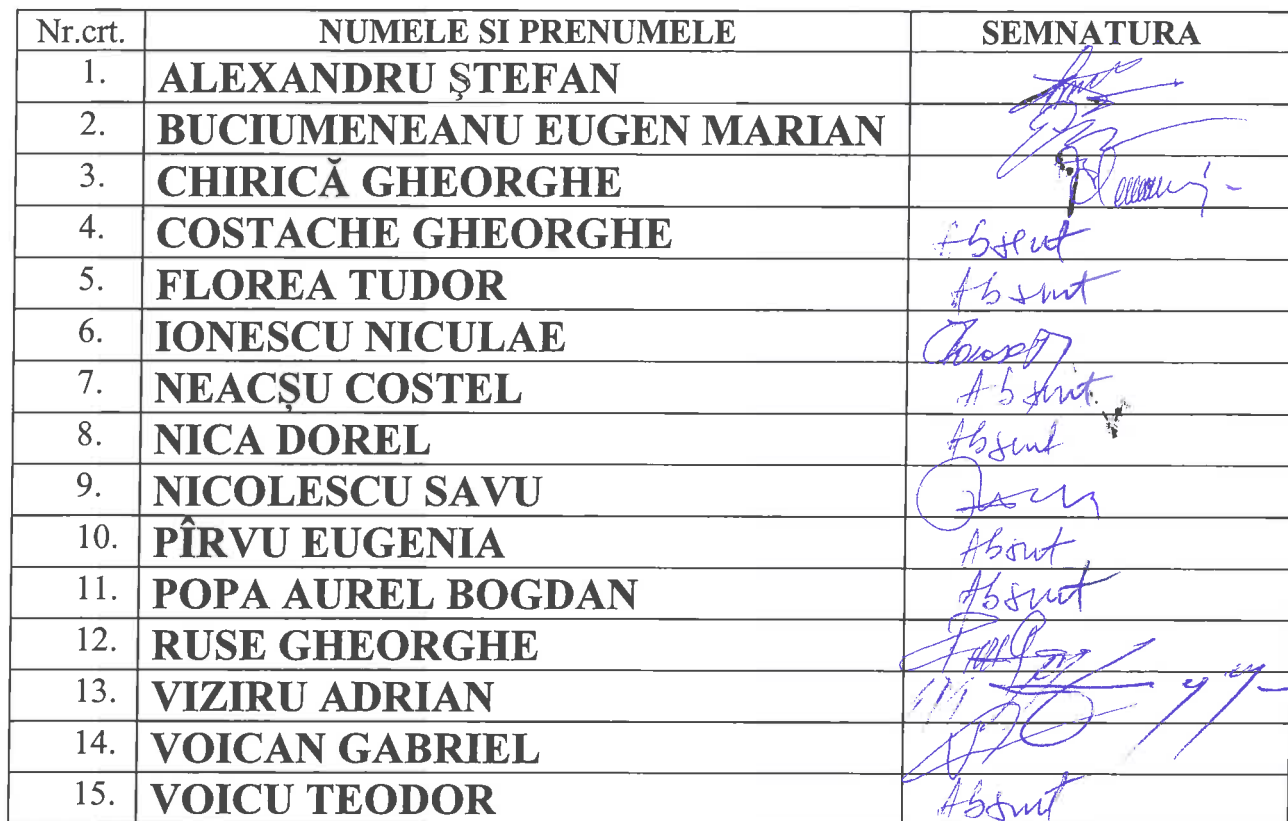 Nr.crt. NUMELE SI PRENUMELE SEMNATURA
1. ALEXANDRU ŞTEFAN
2. BUCIUMENEANU EUGEN MARIAN
3. CHIRICĂ GHEORGHE
4. COSTACHE GHEORGHE Absent
5. FLOREA TUDOR Absent
6. IONESCU NICULAE
7. NEACŞU COSTEL Absent
8. NICA DOREL Absent
9. NICOLESCU SAVU
10. PÎRVU EUGENIA Absent
11. POPA AUREL BOGDAN Absent
12. RUSE GHEORGHE
13. VIZIRU ADRIAN
14. VOICAN GABRIEL
15. VOICU TEODOR Absent